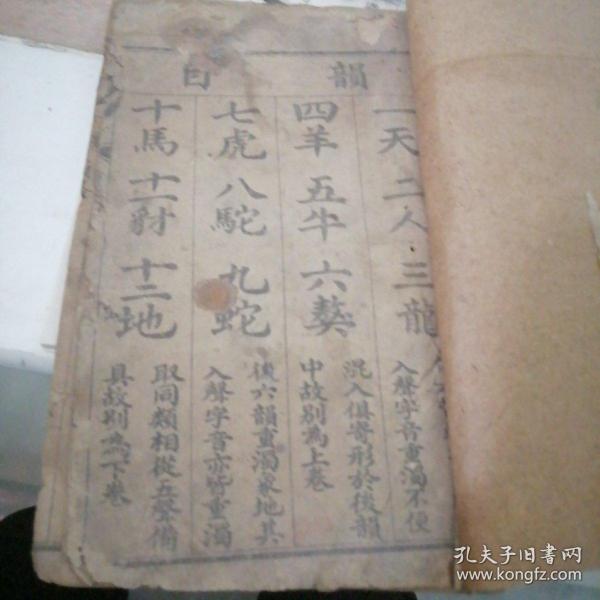 韻目
一天 二人 三龍
四羊 五牛 六獒
七虎 八駝 九蛇
十馬 十一豺 十二地
入聲字音重濁不便
混入俱寄形於後韻
中故别為上卷
後六韻重濁象地其
入聲字音亦皆重濁
取同類相從五聲備
具故别為下卷
孔夫子旧书网
www.kongfz.com